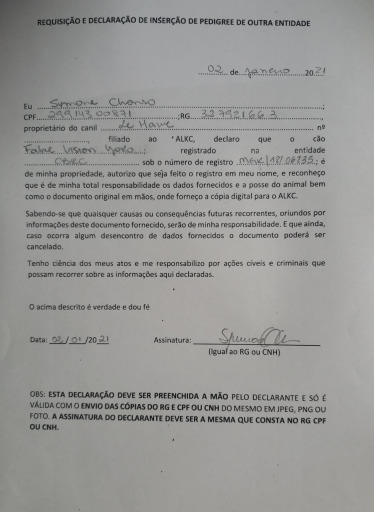 REQUISIÇÃO E DECLARAÇÃO DE INSERÇÃO DE PEDIGREE DE OUTRA ENTIDADE
02 de janeiro 2021
Eu Symone Chonso;
CPF 29914300871;RG 327921663,
proprietário do canil de Have nº
, filiado ao ALKC, declaro que o cão
Vision York; registrado na entidade
OBKC sob o número de registro ; é
de minha propriedade, autorizo que seja feito o registro em meu nome, e reconheço
que é de minha total responsabilidade os dados fornecidos e a posse do animal bem
como o documento original em mãos, onde forneço a cópia digital para o ALKC.
Sabendo-se que quaisquer causas ou consequências futuras recorrentes, oriundos por
informações deste documento fornecido, serão de minha responsabilidade. E que ainda,
caso ocorra algum desencontro de dados fornecidos o documento poderá ser
cancelado.
Tenho ciência dos meus atos e me responsabilizo por ações civeis e criminais que
possam recorrer sobre as informações aqui declaradas.
O acima descrito é verdade e dou fé
Data: 02/01/2021 Assinatura:
(Igual ao RG ou CNH)
OBS: ESTA DECLARAÇÃO DEVE SER PREENCHIDA A MÃO PELO DECLARANTE E SÓ É
VÁLIDA COM O ENVIO DAS CÓPIAS DO RG E CPF OU CNH DO MESMO EM JPEG, PNG OU
FOTO. A ASSINATURA DO DECLARANTE DEVE SER A MESMA QUE CONSTA NO RG CPF
OU CNH.